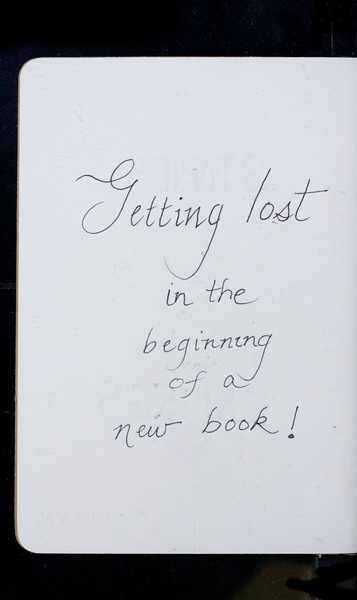 Getting lost
in the
beginning
of a
new book!